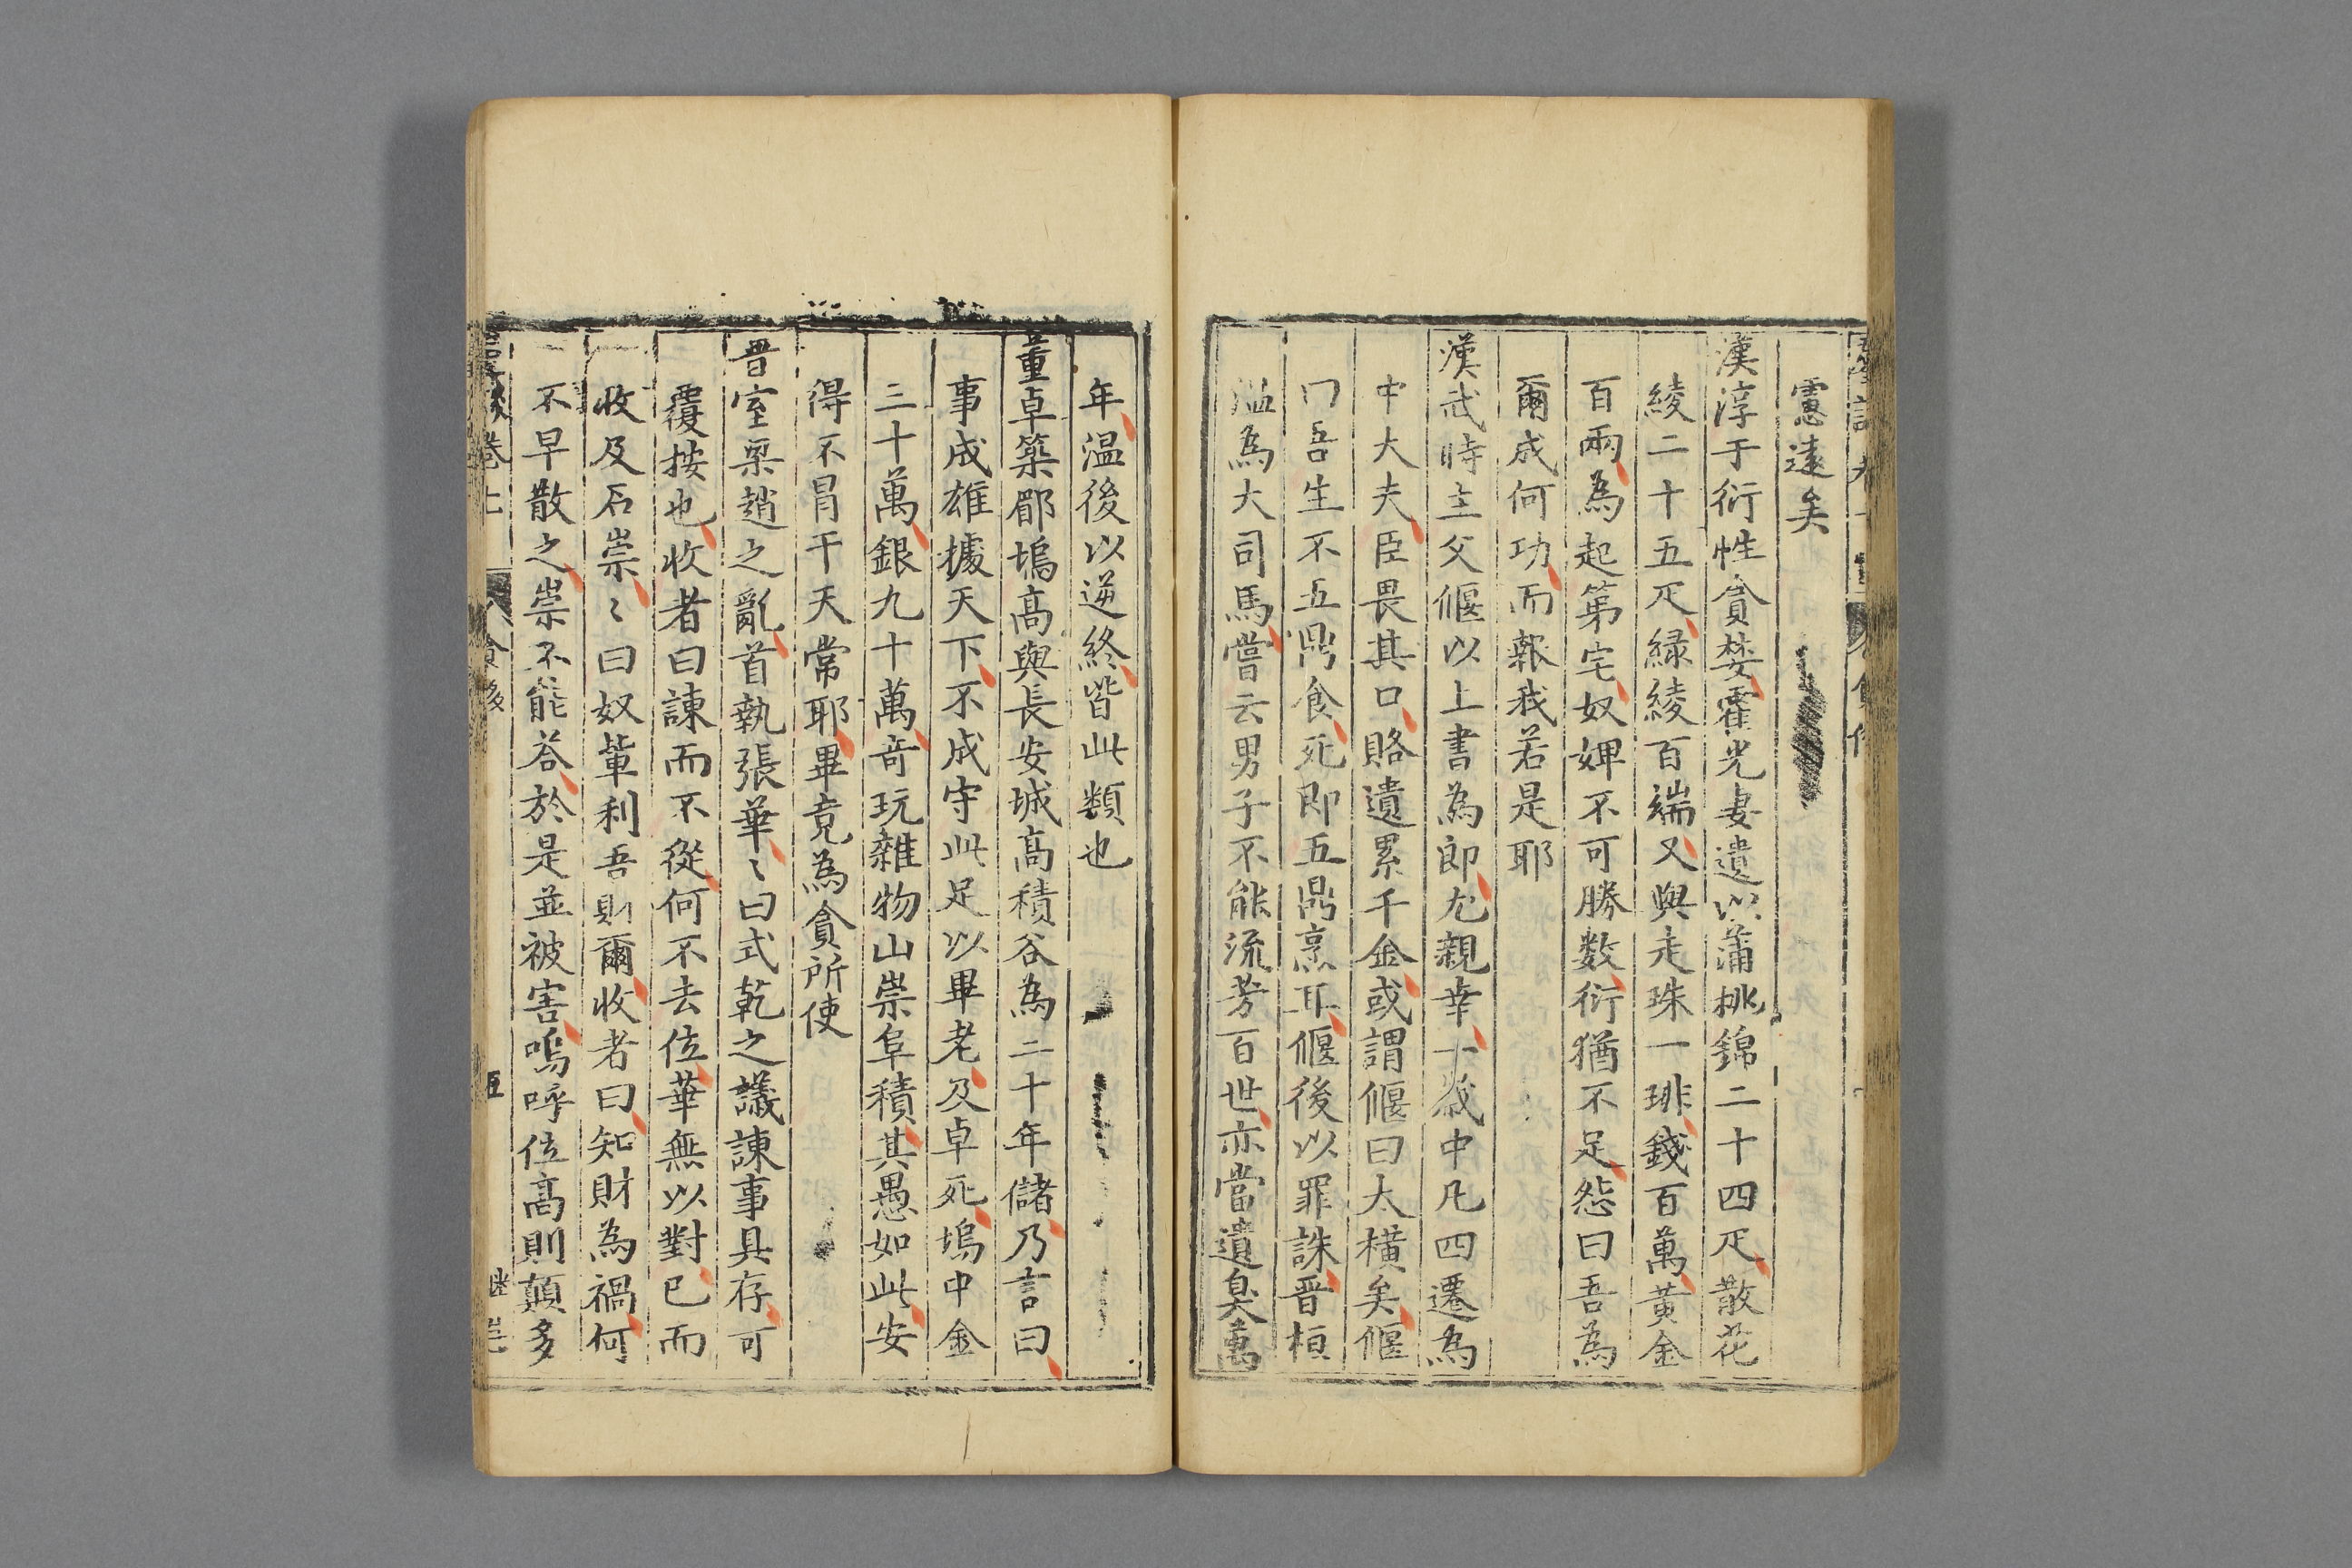 憲遠矣
漢淳于衍性貪婪霍光妻遺以蒲桃錦二十四疋散花
綾二十五疋緑綾百端又與走珠一琲錢百萬黄金
百兩為起第宅奴婢不可勝数衍猶不足怨曰吾為
爾成何功而報我若是耶
漢武時主父偃以上書為郎尤親幸一歲中凡四遷為
中大夫臣畏其口賂遺累千金或謂偃曰太横矣偃
曰吾生不五鼎食死即五鼎烹耳偃後以罪誅晋桓
温為大司馬嘗云男子不能流芳百世亦當遺臭萬
年温後以逆終皆此類也
董卓築郿塢高與長安城高積谷為二十年儲乃言曰
事成雄據天下不成守此足以畢老及卓死塢中金
三十萬銀九十萬奇玩雜物山崇阜積其愚如此安
得不冐干天常耶畢竟為貪所使
晋室梁趙之亂首執張華〻曰式乾之議諫事具存可
覆按也收者曰諫而不從何不去位華無以對已而
收及石崇〻曰奴輩利吾財爾收者曰知財為禍何
不早散之崇不能荅於是並被害嗚呼位高則顛多